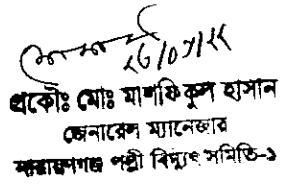 ২৬/০১/২২
প্রকৌঃ মোঃ মাশফিকুল হাসান
জেনারেল ম্যানেজার
নারায়ণগঞ্জ পল্লী বিদ্যুৎ সমিতি-১